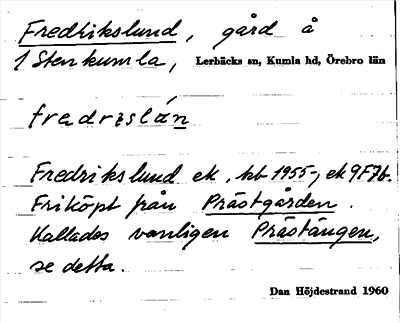 Fredrikslund, gård å
1 Stenkumla, Lerbäcks sn, Kumla hd, Örebro län
fredrislún
Fredrikslund ek, kb 1955-, ek 9F7b.
Friköpt från Prästgården.
Kallades vanligen Prästängen,
se detta.
Dan Höjdestrand 1960